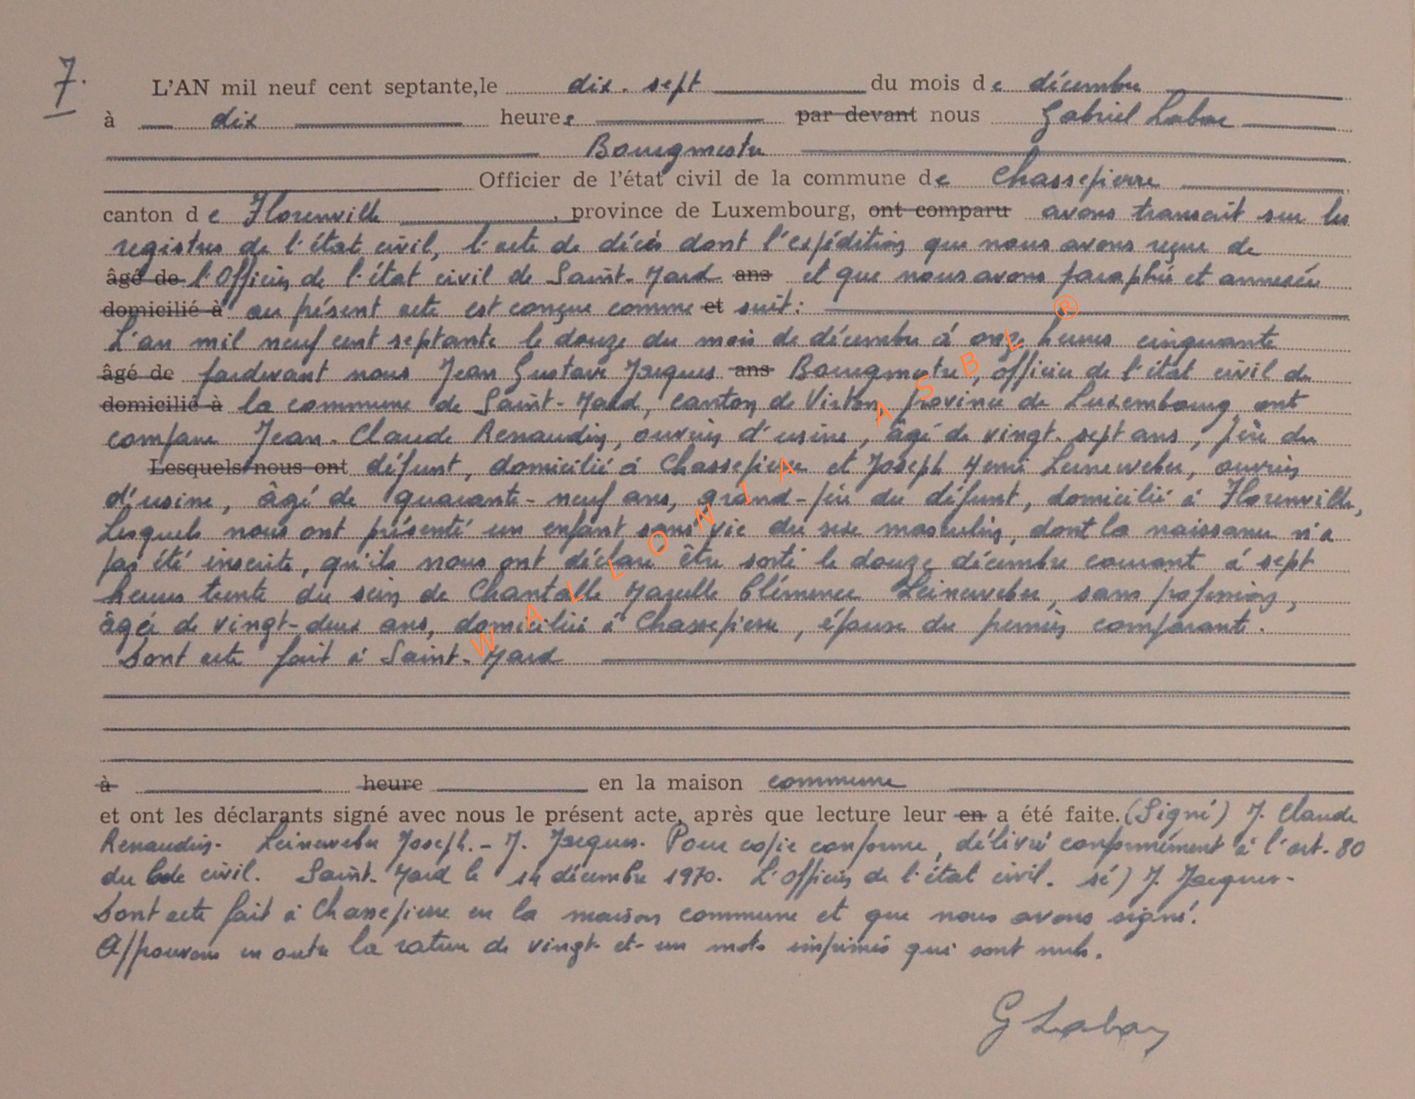 7.
L'AN mil neuf cent septante, le dix-sept du mois de décembre
à dix heures par devant nous Gabriel Labar
Bourgmestre
Officier de l'état civil de la commune de Chassepierre
canton de Florenville, province de Luxembourg, ont comparu avons transcrit sur les
registres de l'état civil, l'acte de décès dont l'expédition que nous avons reçue de
âgé de l'Officier de l'état civil de Saint-Mard ans et que nous avons paraphée et annexée
domicilié à au présent acte est conçue comme et suit :
L'an mil neuf cent septante le douze du mois de décembre à onze heures cinquante
âgé de pardevant nous Jean Gustave Jacques ans Bourgmestre, officier de l'état civil de
domicilié à la commune de Saint-Mard, canton de Virton, province de Luxembourg, ont
comparu Jean-Claude Renaudin, ouvrier d'usine, âgé de vingt-sept ans, père du
Lesquels nous ont défunt, domicilié à Chassepierre et Joseph Henri Leineweber, ouvrier
d'usine, âgé de quarante-neuf ans, grand-père du défunt, domicilié à Florenville,
Lesquels nous ont présenté un enfant sans vie du sexe masculin, dont la naissance n'a
pas été inscrite, qu'ils nous ont déclaré être sorti le douze décembre courant à sept
heures trente du sein de Chantalle Marcelle Clémence Leineweber, sans profession,
âgée de vingt-deux ans, domiciliée à Chassepierre, épouse du premier comparant.
Dont acte fait à Saint-Mard
à heure en la maison commune
et ont les déclarants signé avec nous le présent acte, après que lecture leur en a été faite. (Signé) J. Claude
Renaudin - Leineweber Joseph. - J. Jacques. Pour copie conforme, délivré conformément à l'art. 80
du Code civil. Saint-Mard le 14 décembre 1970. L'Officier de l'état civil. sé) J. Jacques.
Dont acte fait à Chassepierre en la maison commune et que nous avons signé.
Approuvons en outre la rature de vingt-et-un mots imprimés qui sont nuls.
G Labar
WALLONIA ASBL ®